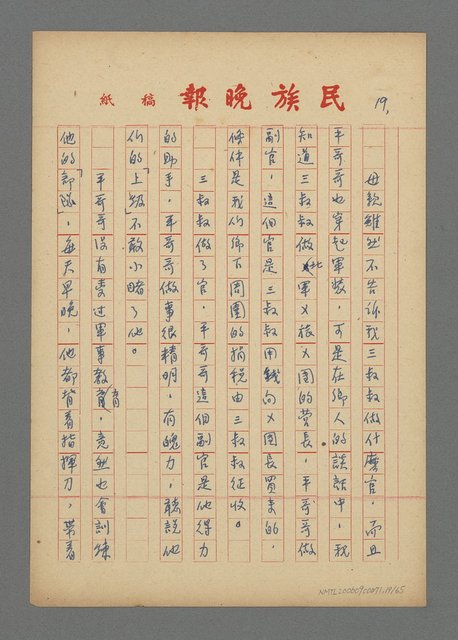 民族晚報 稿紙
19,
母親雖然不告訴我三叔叔做什麼官，而且
平哥哥也穿起軍裝，可是在鄉人的談話中，我
知道三叔叔做北軍ㄨ旅ㄨ團的營長。平哥哥做
副官，這個官是三叔叔用錢向ㄨ團長買來的，
條件是我们鄉下周圍的捐稅由三叔叔征收。
三叔叔做了官，平哥哥這個副官是他得力
的助手，平哥哥做事很精明，有魄力，聽說他
们的「上級」不敢小睹了他。
平哥哥沒有受过軍事教育，竟然也會訓練
他的「部隊」，每天早晚，他都揹着指揮刀，帶着
NMTL20060900091.19/65